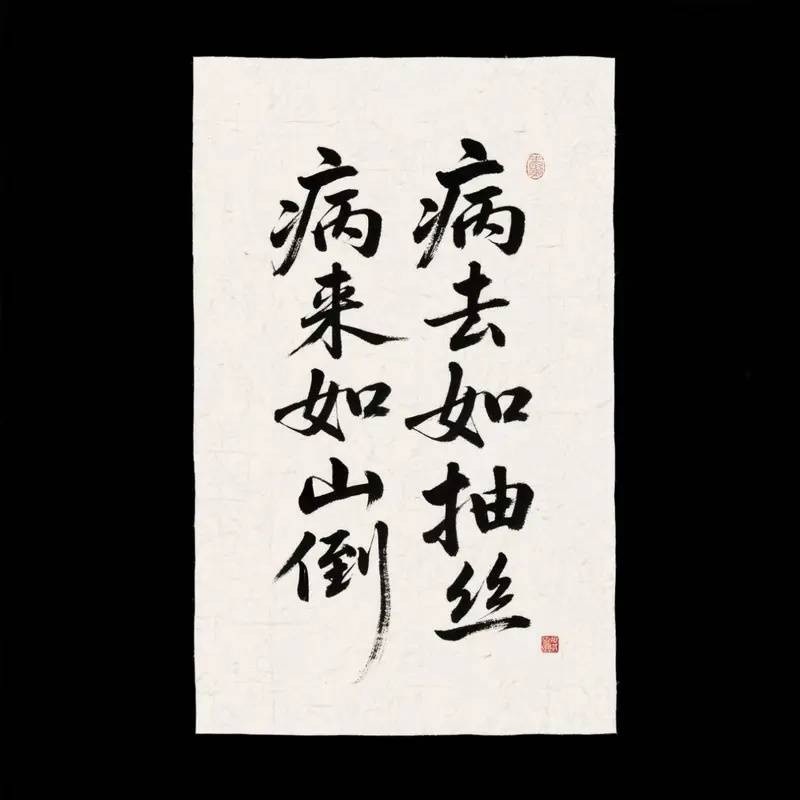 病来如山倒
病去如抽丝